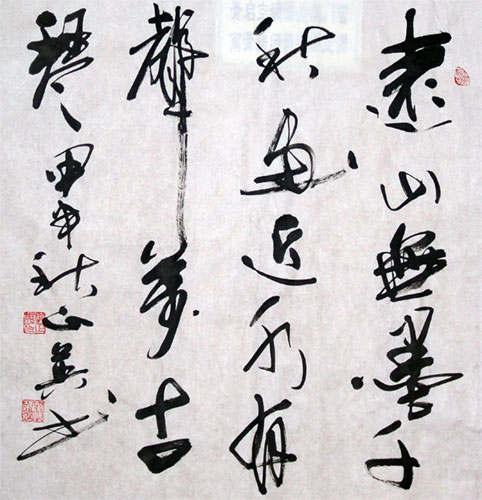 遠山無墨千
秋画近水有
聲萬古
琴甲申秋正英书